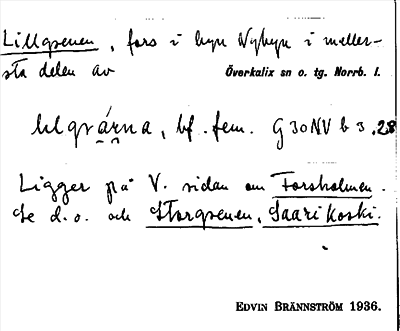 Lillqvenen, fors i byn Nybyn i meller-
sta delen av Överkalix sn o. tg. Norrb. l.
lılqvárna, bf. fem. G 30 NV b 3, 28
Ligger på V. sidan om Forsholmen.
Se d. o. och Storqvenen, Saarikoski.
EDVIN BRÄNNSTRÖM 1936.